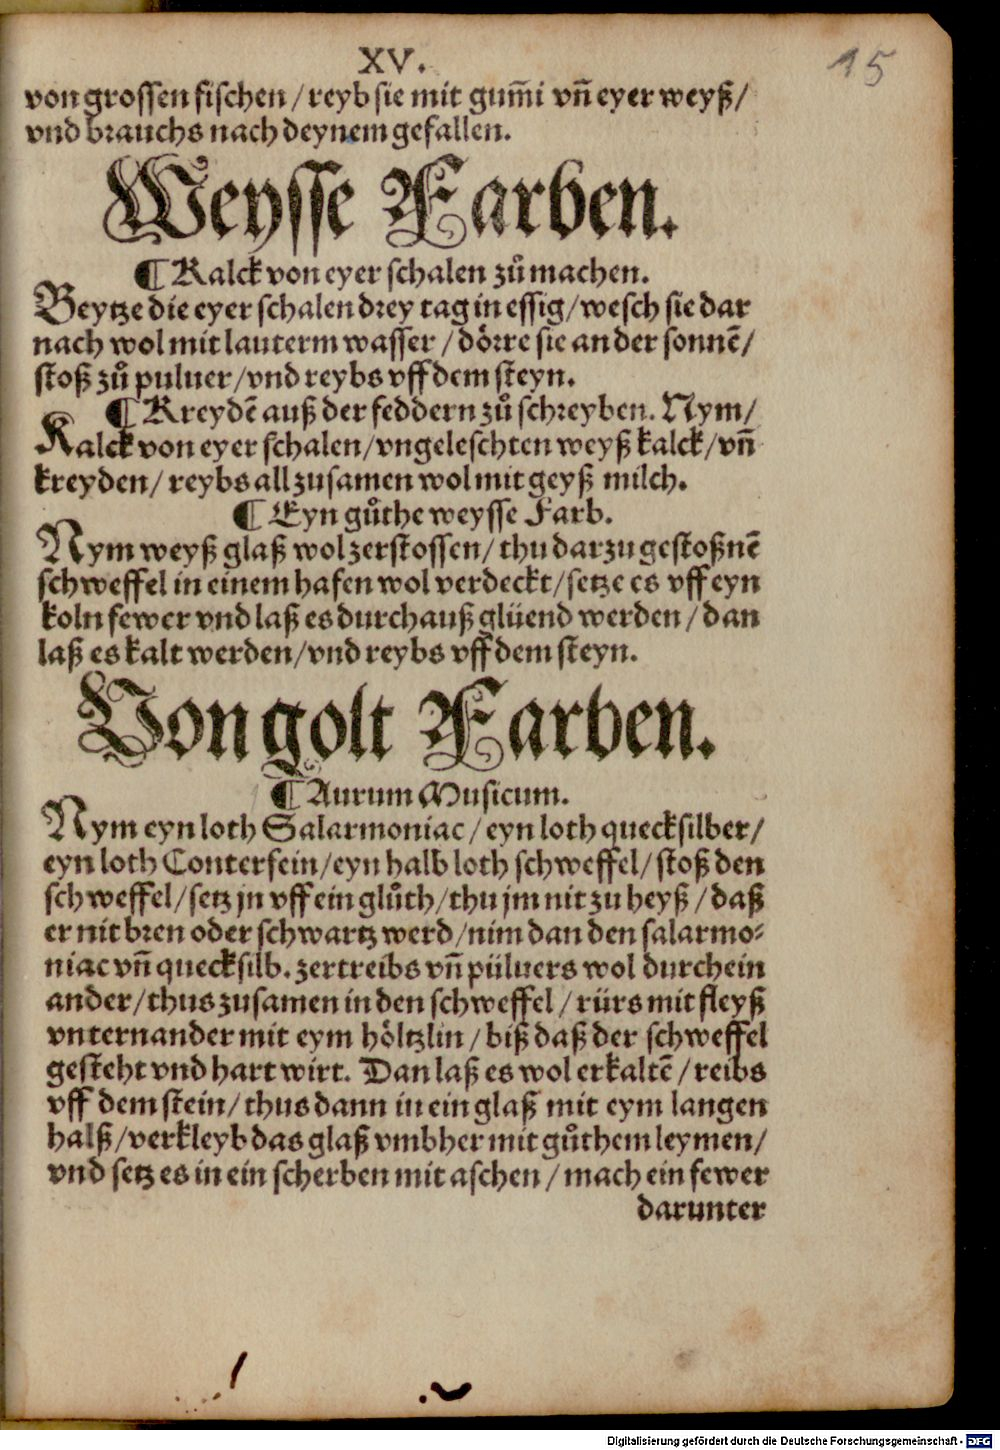 XV.
15
von grossen fischen / reyb sie mit gum̃i vñ eyer weyß /
vnd brauchs nach deynem gefallen.
Weysse Farben.
¶ Kalck von eyer schalen zů machen.
Beytze die eyer schalen drey tag in essig / wesch sie dar
nach wol mit lauterm wasser / dörre sie an der sonnẽ /
stoß zů puluer / vnd reybs vff dem steyn.
¶ Kreydẽ auß der feddern zů schreyben. Nym /
Kalck von eyer schalen / vngeleschten weyß kalck / vñ
kreyden / reybs all zusamen wol mit geyß milch.
¶ Eyn gůthe weysse Farb.
Nym weyß glaß wol zerstossen / thu darzu gestoßnẽ
schweffel in einem hafen wol verdeckt / setze es vff eyn
koln fewer vnd laß es durchauß glüend werden / dan
laß es kalt werden / vnd reybs vff dem steyn.
Von golt Farben.
¶ Aurum Musicum.
Nym eyn loth Salarmoniac / eyn loth quecksilber /
eyn loth Conterfein / eyn halb loth schweffel / stoß den
schweffel / setz jn vff ein glůth / thu jm nit zu heyß / daß
er nit bren oder schwartz werd / nim dan den salarmo⸗
niac vñ quecksilb. zertreibs vñ pülvers wol durchein
ander / thus zusamen in den schweffel / rürs mit fleyß
vnternander mit eym höltzlin / biß daß der schweffel
gesteht vnd hart wirt. Dan laß es wol erkaltẽ / reibs
vff dem stein / thus dann in ein glaß mit eym langen
halß / verkleyb das glaß vmbher mit gůthem leymen /
vnd setz es in ein scherben mit aschen / mach ein fewer
darunter
Digitalisierung gefördert durch die Deutsche Forschungsgemeinschaft - DFG